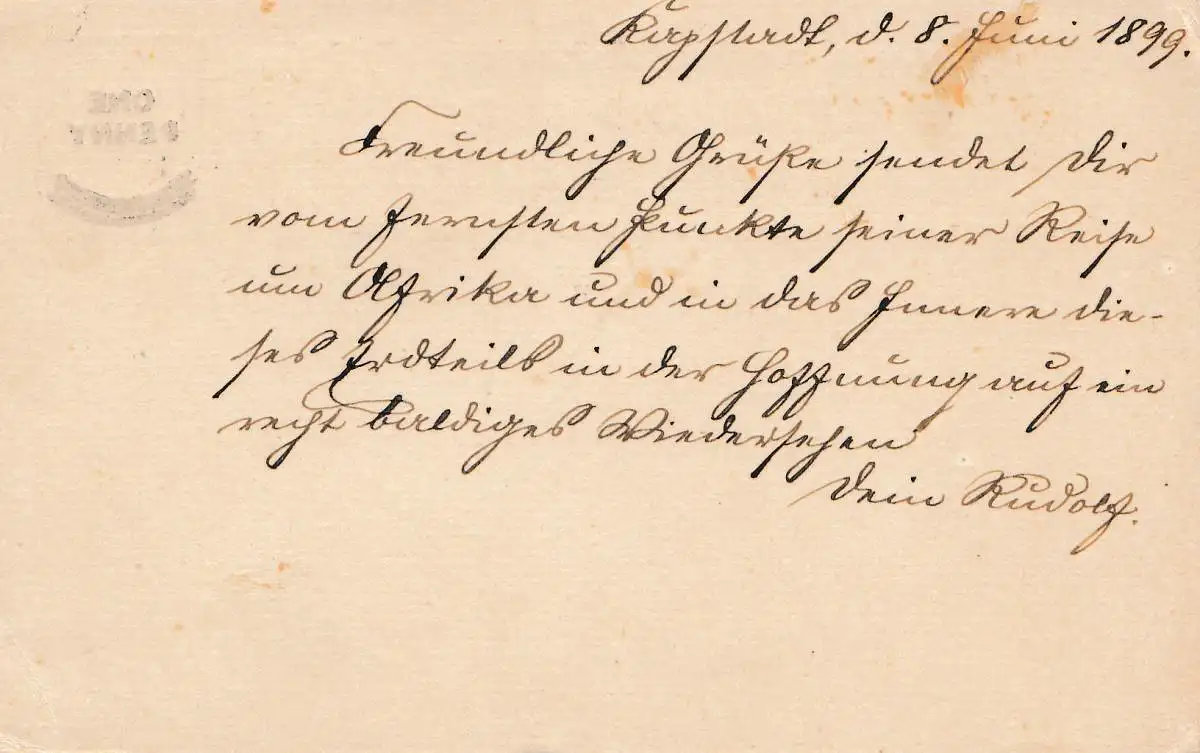 Kapstadt, d. 8. Juni 1899.
ONE
PENNY
Freundliche Grüße sendet Dir
vom fernsten Punkte seiner Reise
um Afrika und in das Innere die-
ses Erdteils in der Hoffnung auf ein
recht baldiges Wiedersehen
Dein Rudolf.